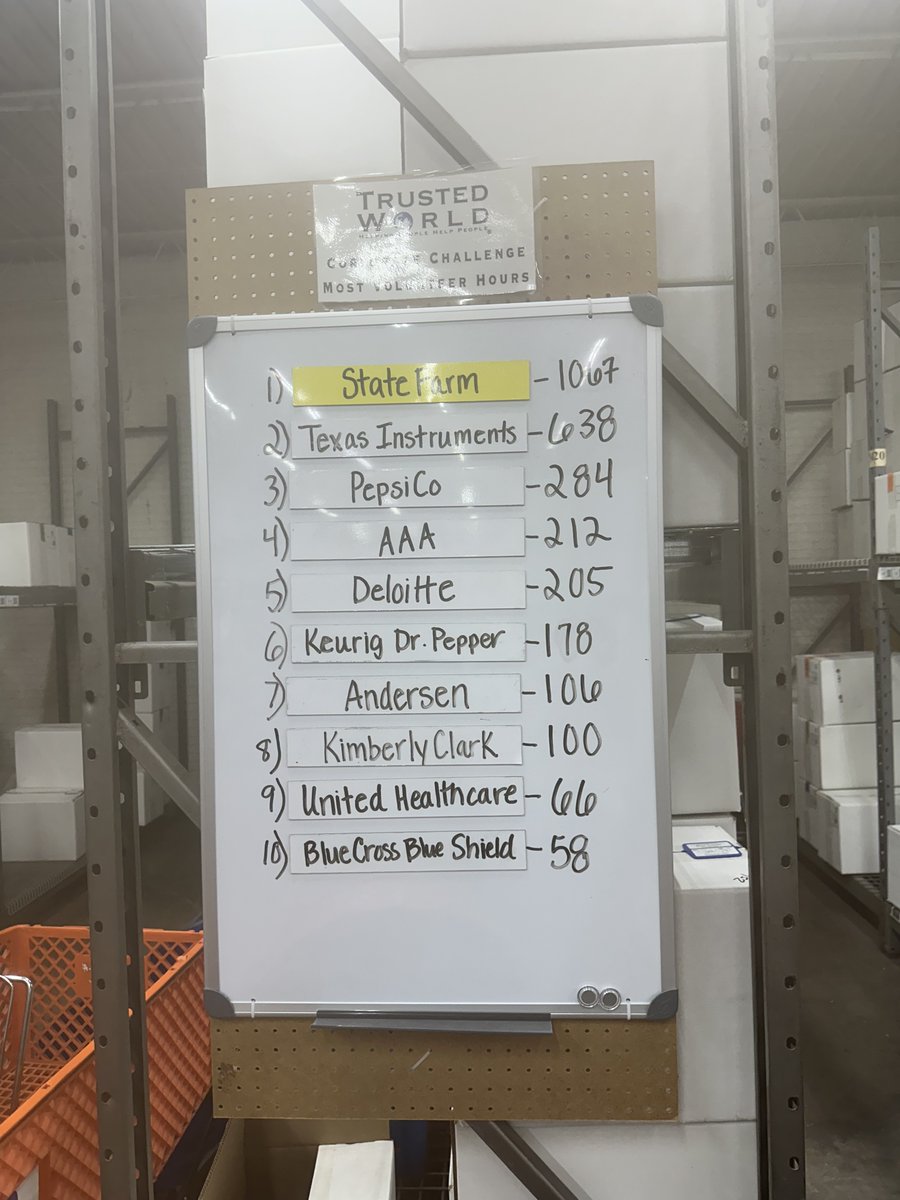 TRUSTED
WORLD
HELPING PEOPLE HELP PEOPLE
CORPORATE CHALLENGE
MOST VOLUNTEER HOURS
1) State Farm - 1067
2) Texas Instruments - 638
3) PepsiCo - 284
4) AAA - 212
5) Deloitte - 205
6) Keurig Dr. Pepper - 178
7) Andersen - 106
8) Kimberly Clark - 100
9) United Healthcare - 66
10) BlueCross Blue Shield - 58
20